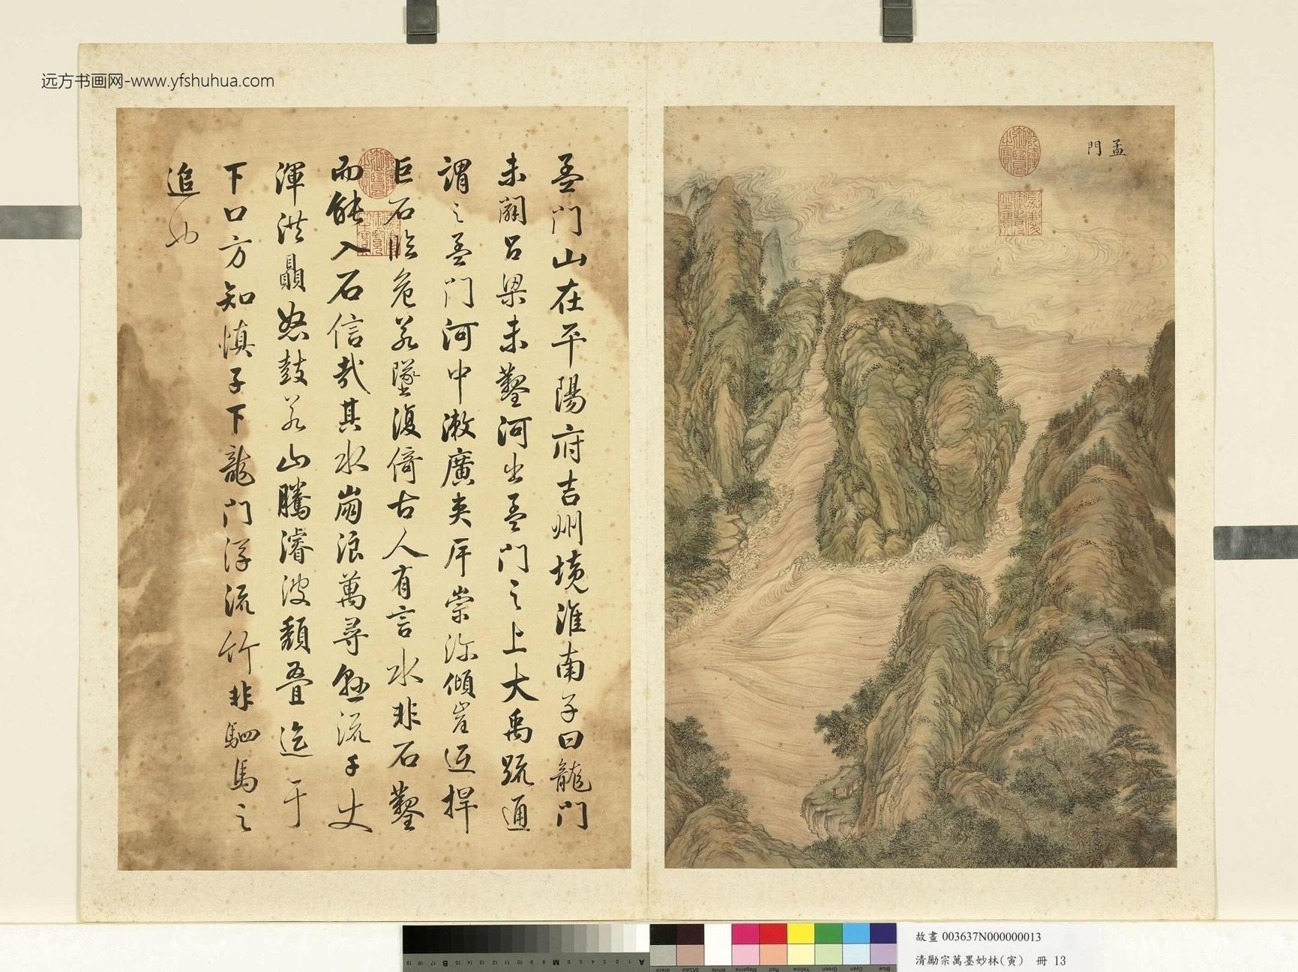 远方书画网-www.yfshuhua.com
孟門
孟门山在平陽府吉州境淮南子曰龍门
未闢吕梁未鑿河出孟门之上大禹疏通
謂之孟门河中漱廣夹岸崇深傾崖迈捍
巨石臨危若墜復倚古人有言水非石鑿
而能入石信哉其水崩浪萬尋懸流千丈
渾洪贔怒鼓若山騰濬波頹疊迄于
下口方知慎子下龍门浮流竹非駟馬之
追也
故畫 003637N000000013
清勵宗萬墨妙林(寅) 冊 13